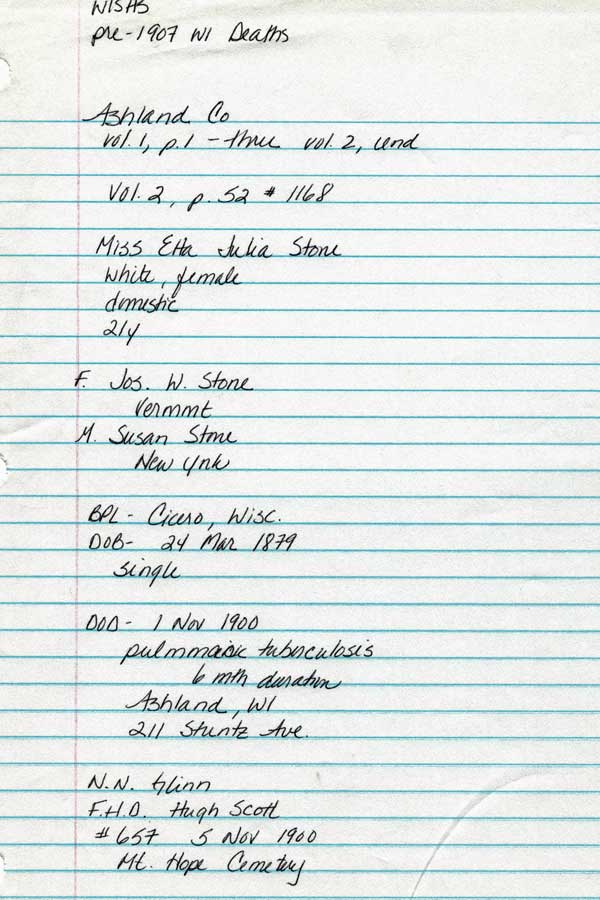 WISHS
pre-1907 WI Deaths
Ashland Co
vol. 1, p. 1 - thru vol. 2, end
Vol. 2, p. 52 # 1168
Miss Etta Julia Stone
white, female
domestic
21y
F. Jos. W. Stone
Vermont
M. Susan Stone
New York
BPL - Cicero, Wisc.
DOB - 24 Mar 1879
single
DOD - 1 Nov 1900
tuberculosis
6 mth duration
Ashland, WI
211 Stuntz Ave.
N.N. Glinn
F.H.D. Hugh Scott
#657 5 Nov 1900
Mt. Hope Cemetery